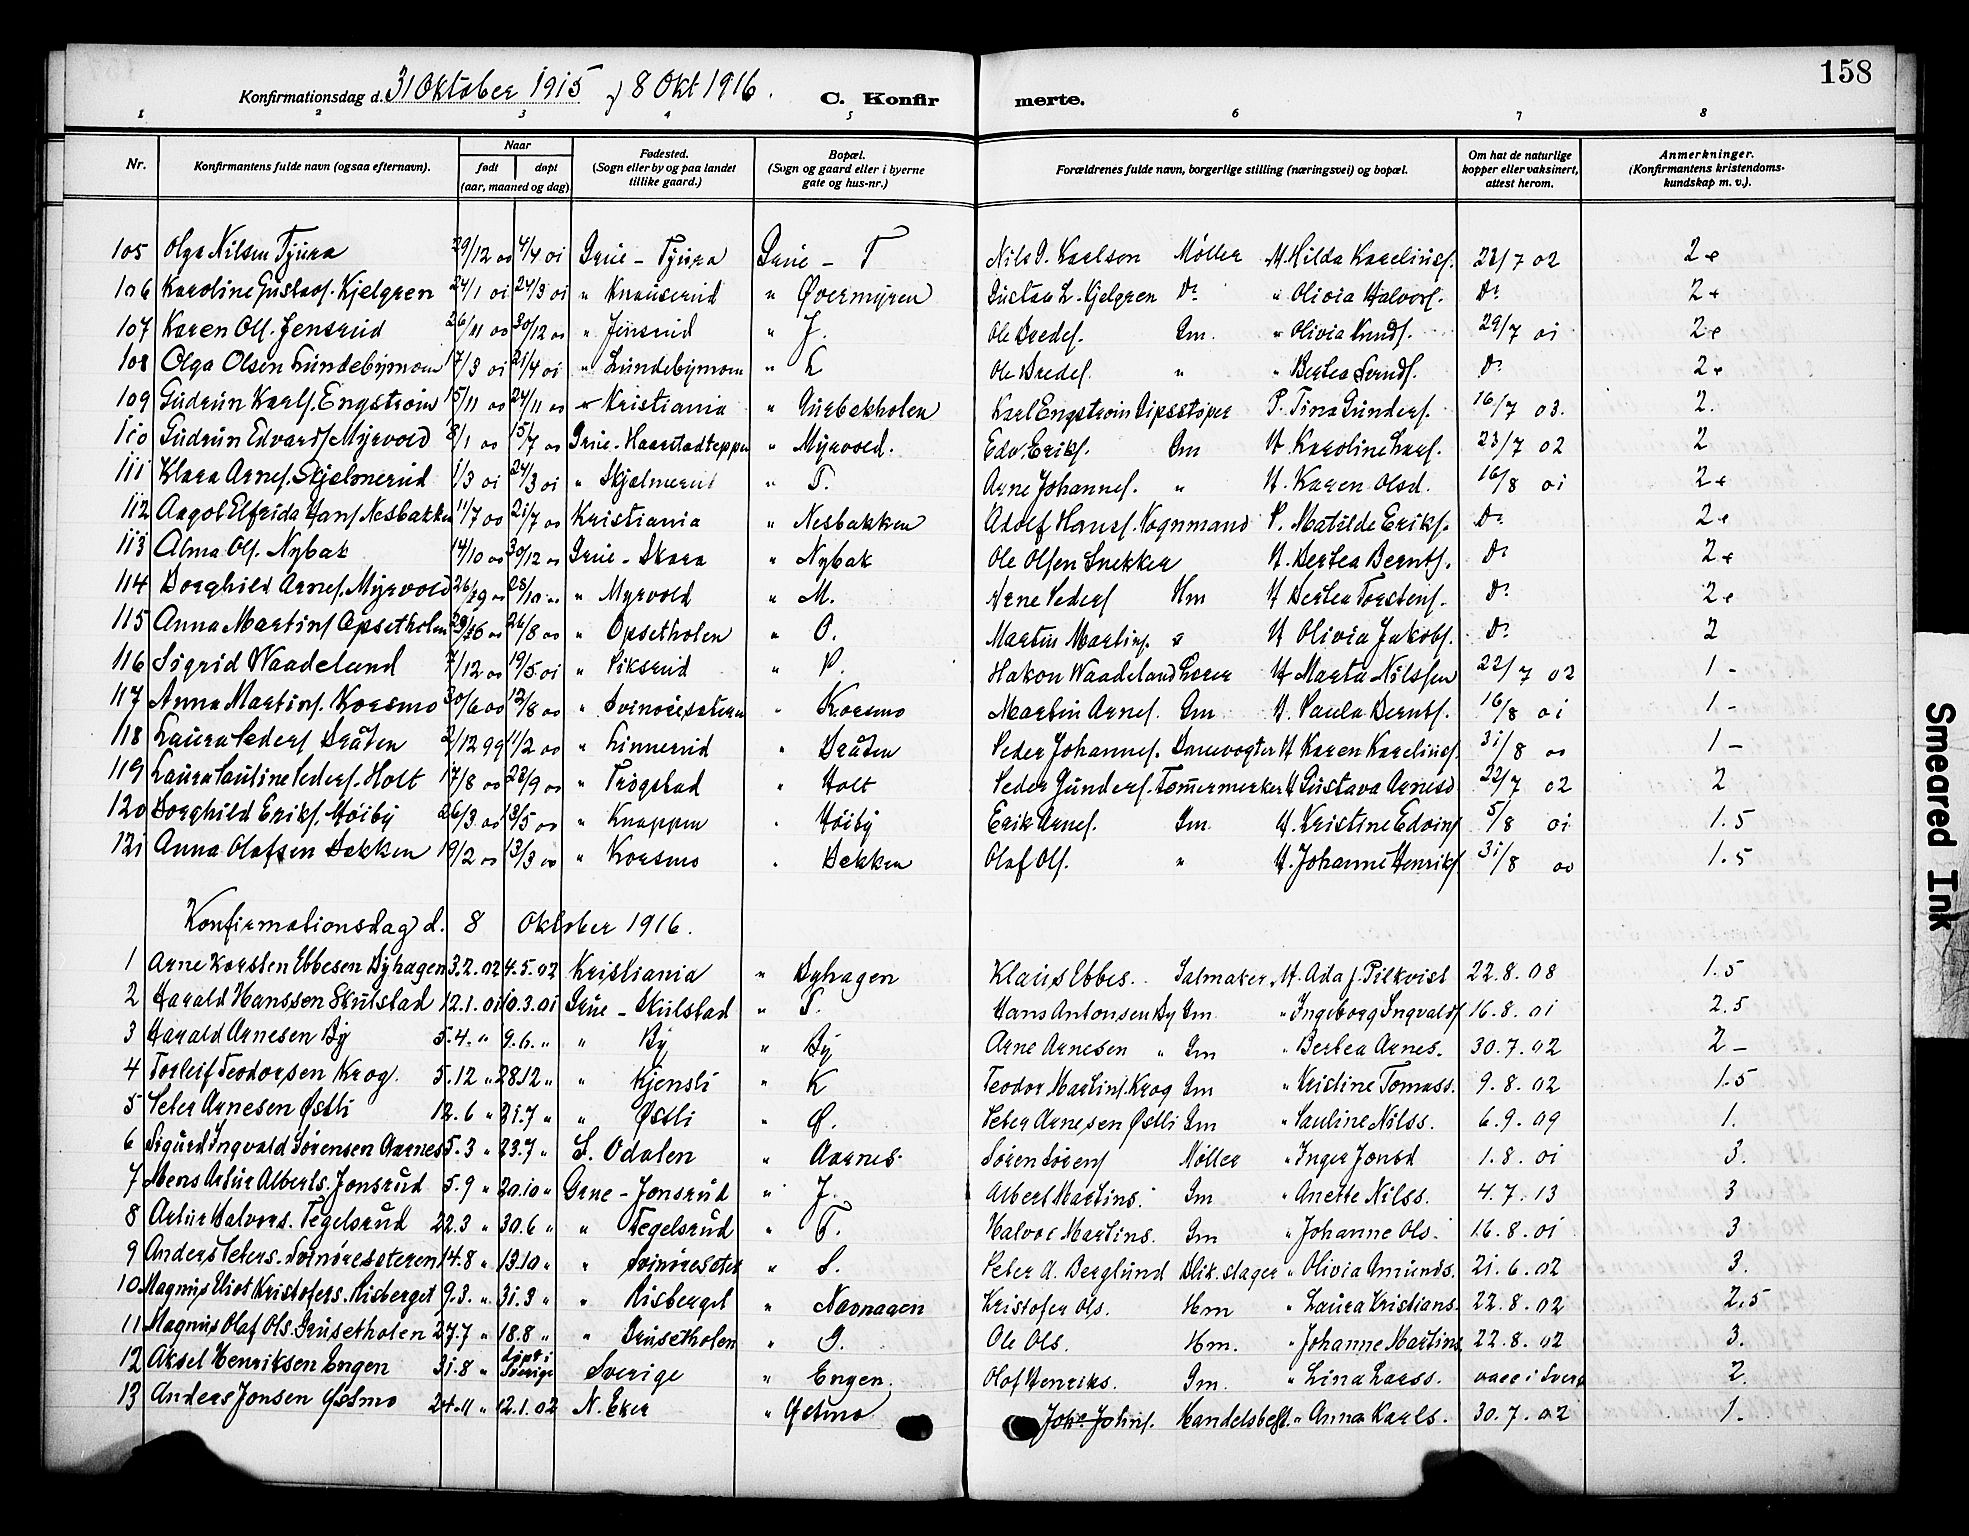 158
Konfirmationsdag d. 31 Oktober 1915 of 8 Okt 1916. C. Konfirmerte.
1 2 3 4 5 6 7 8
Nr. Konfirmantens fulde navn (ogsaa efternavn). Naar født døpt (aar, maaned og dag) Fødested. (Sogn eller by og paa landet tillike gaard.) Bopæl. (Sogn og gaard eller i byerne gate og hus-nr.) Forældrenes fulde navn, borgerlige stilling (næringsvei) og bopæl. Om hat de naturlige kopper eller vaksinert, attest herom. Anmerkninger. (Konfirmantens kristendomskundskap m. v.).
105 Olga Nilsen Tjura 29/12 00 4/4 01 Grue - Tjura Grue - T Nils G. Karlsen Møller H Hilda Karelinusf. 22/7 02 2+
106 Karoline Gustavs. Kjelgren 24/1 01 24/3 01 " Knauserud " Øvermyren Gustav L. Kjelgren Do " Olivia Halvorf. Do 2+
107 Karen Olf. Jensrud 26/11 00 30/12 00 " Jensrud " J. Ole Bredef. Gm. " Olivia Knudf. 29/7 01 2+
108 Olga Olsen Lundebymoen 17/3 01 21/4 01 " Lundebymoen " L Ole Bredef. " " Bertea Berndf. Do 2+
109 Gudrun Karlf. Engstrøm 15/11 00 24/11 00 Kristiania " Gurbekholen Karl Engstrøm Gipsstøper P. Tina Gunderf. 16/7 03. 2.
110 Gudrun Edvardf Myrvold 8/1 00 15/7 00 Grue - Haarstadteppen " Myrvold. Edv. Erikf. Gm H Karoline Larf. 23/7 02 2
111 Klara Arnef. Skjelmerud 1/3 01 24/3 01 " Skjelmerud " T. Arne Johannef. " H. Karen Olsd. 16/8 01 2+
112 Aagot Elfrida Hansf Nesbakken 11/7 00 21/7 00 Kristiania " Nesbakken Adolf Hansf. Vognmand P. Matilde Erikf. Do 2+
113 Alma Olf. Nybak 14/10 00 30/12 00 Grue - Skara " Nybak Ole Olsen Snekker H. Bertea Berntf. Do 2+
114 Borghild Arnef. Myrvold 26/9 00 28/10 00 " Myrvold " M. Arne Pederf Hm H Bertea Torstenf. Do 2+
115 Anna Martinf Opsetholen 26/8 00 " Opsetholen " O. Martin Martinf. H Olivia Jakobf. Do 2
116 Sigrid Waadeland 7/12 00 19/5 01 " Piksrud " P. Hakon Waadeland Lærer H Marta Nilssen 22/7 02 1 -
117 Anna Martinf. Korsmo 30/6 00 12/8 00 " Svinøresæteren " Korsmo Martin Arnef. Gm H. Paula Berntf. 16/8 01 1 -
118 Laura Pederf Bråten 2/12 99 11/2 00 " Linnerud " Bråten Peder Johannef. Banevogter H Karen Karelinusf. 31/8 00 1 -
119 Laura Pauline Pederf. Holt 17/8 00 22/9 00 " Trøgstad " Holt Peder Gunderf. Tømmermerker H Gustava Arnesd 22/7 02 2
120 Borghild Erikf. Høiby 26/3 00 13/5 00 " Knappen " Høiby Erik Arnef. Gm. H. Kristine Edvinf 5/8 01 1.5
121 Anna Olafsen Bekken 19/2 00 13/3 00 " Korsmo " Bekken Olaf Olf. " H. Johanne Henrikf. 31/8 00 1.5
Konfirmationsdag d. 8 Oktober 1916.
1 Arne Karsten Ebbesen Dyhagen 3.2.02 4.5.02 Kristiania " Dyhagen Klaus Ebbes. Salmaker H. Ada J. Pilkvist 22.8.08 1.5
2 Harald Hanssen Skulstad 12.1.01 10.3.01 Grue - Skulstad " S. Hans Antonsen By Gm " Ingeborg Ingvaldf 16.8.01 2.5
3 Harald Arnesen By 5.4. " 9.6. " " By " By Arne Arnesen " Gm " Bertea Arnes. 30.7.02 2 -
4 Torleif Teodorsen Krog. 5.12 " 28.12 " " Kjensli " K Teodor Martinf. Krog Gm " Kristine Tomass. 9.8.02 1.5
5 Peter Arnesen Østli 12.6 " 21.7 " " Østli " Ø. Peter Arnesen Østli Gm " Pauline Nilss. 6.9.09 1.
6 Sigurd Ingvald Sørensen Aarnes 5.3 " 23.7 " S. Odalen " Aarnes Søren Sørenf Møller " Inger Jonsd 1.8.01 3.
7 Mens Artur Alberts. Jonsrud 5.9 " 20.10 " Grue - Jonsrud " J. Albert Martins. Gm " Anette Nilss. 4.7.13 3
8 Artur Halvors. Tegelsrud 22.3 " 30.6 " " Tegelsrud " T. Halvor Martins. Gm " Johanne Ols. 16.8.01 3
9 Anders Peters. Svinøresæteren 14.8 " 13.10 " " Svinøresæter " S. Peter A. Berglund Blik.slager " Olivia Amunds. 21.6.02 3.
10 Magnus Eliot Kristofers. Risberget 9.3. " 31.3 " " Risberget " Navnaaen Kristofer Ols. Hm " Laura Kristians. 22.8.02 2.5
11 Magnus Olaf Ols. Grusetholen 27.7 " 18.8 " " Grusetholen " G. Ole Ols. Hm. " Johanne Martins 22.8.02 3.
12 Aksel Henriksen Engen 31.8 " døpt i Sverige Sverige " Engen. Olof Henriks. Gm. " Lina Larss. vacc i Sverig 2.
13 Anders Jonsen Østmo 24.11 " 12.1.02 N. Eker " Østmo Johs Johnf. Handelsbest. " Anna Karls. 30.7.02 1 -
Smeared Ink